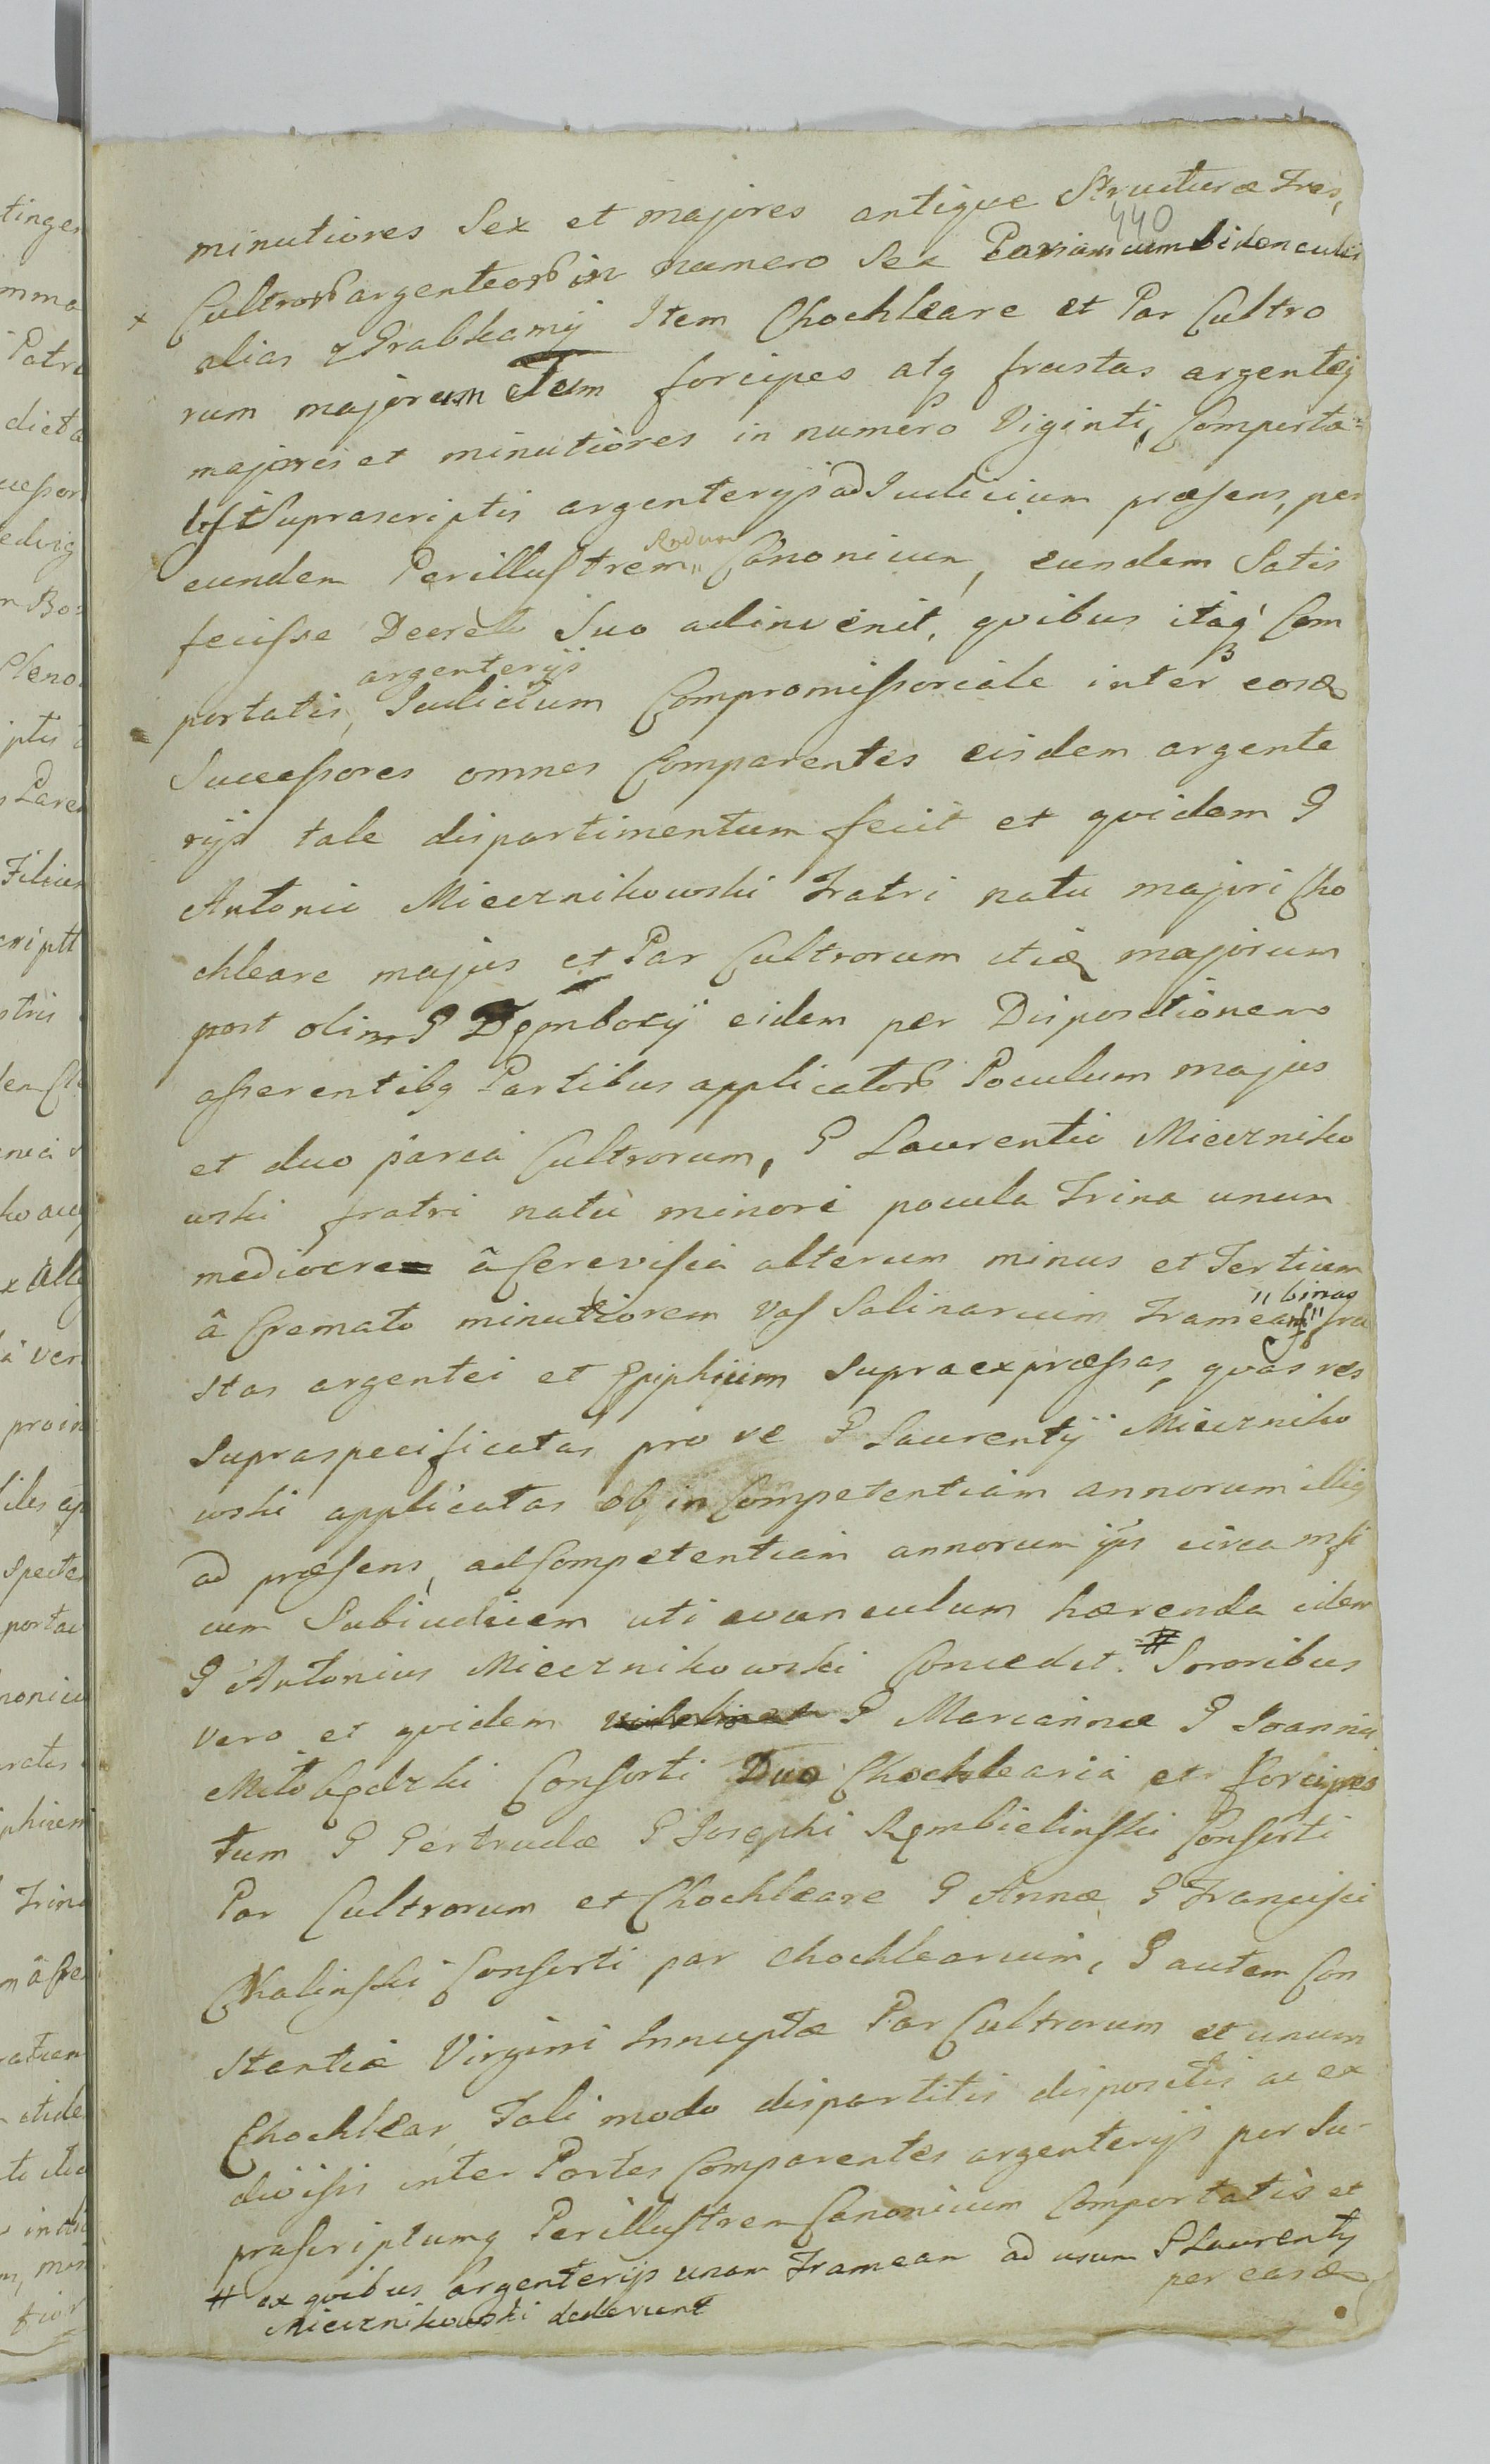 minutiores Sex et majores antiquæ Structuræ Tres,
440
Cultror argenteor in numero Sex Pariam cum bidenculis
alias z Grabkamij Item Chochleare et Par Cultro
rum majorum Tum forcipes atq frustas argentej
majores et minutiores in numero Viginti, Comporta
Suprascriptis argenterijs ad Iudicium præsens, per
eundem Perillustrem Rndum Canonicum, eundem Satis
fecisse Decreto Suo adinvenit, quibus itaq Com
portatis, argenterijs Iudicium Compromissoriale inter eosd
Successores omnes Comparentes eisdem argente
rijs tale dispartimentum fecit et quidem G
Antonio Miecznikowski Fratri natu majori Cho
chleare majus et Par Cultrorum itid majorum
post olim G Dęmboxij eidem per Dispositionem
asserentibq Partibus applicator Poculum majus
et duo paria Cultrorum, G Laurentio Mieczniko
wski fratri natu minori pocula Trina unum
mediocre â Cerevisia alterum minus et Tertium
â Cremato minutiorem Vas Salinarium Frameas " binas " fru
stas argentei et Epiphium supraexpressas, quas res
supraspecificatas pro re G Laurentij Mieczniko
wski applicatas ob in Competentiam annorum illiq
ad præsens, ad Competentiam annorum ijs circa mfi
cum Subiudicem uti avunculum hærenda idem
G Antonius Miecznikowski Concedit. # Sororibus
vero et quidem G Mariannæ G Joannis
Mitobędzki Consorti Duo Chochlearia et forcipes
tum G Gertrudæ G Josephi Rembielinski Consorti
Par Cultrorum et Chochleare G Annæ G Francisci
Chalinski Consorti par chochlearium, G autem Con
stantiæ Virgini Innuptæ Par Cultrorum et unum
Chochlear, Tali modo dispartitis dispositis ac ex
divisis inter Partes Comparentes argenterijs per Su-
præscriptumq Perillustrem Canonicum Comportatis et
per easd
# ex quibus argenterijs unam Frameam ad usum G Laurentij
Miecznikowski dederunt